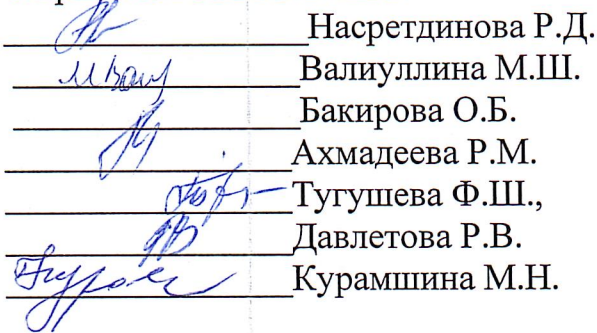 Насретдинова Р.Д.
Валиуллина М.Ш.
Бакирова О.Б.
Ахмадеева Р.М.
Тугушева Ф.Ш.,
Давлетова Р.В.
Курамшина М.Н.